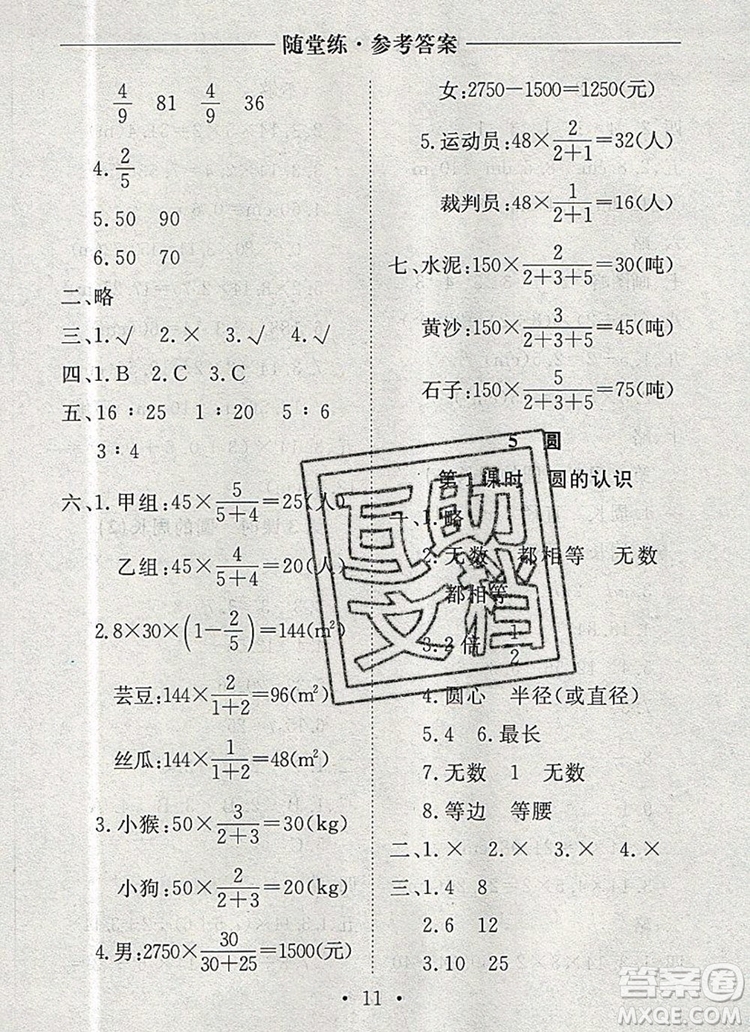 随堂练·参考答案
4/9 81 4/9 36
4. 2/5
5.50 90
6.50 70
二、略
三、1.√ 2.× 3.√ 4.√
四、1.B 2.C 3.C
五、16∶25 1∶20 5∶6
3∶4
六、1.甲组:45×5/(5+4)=25(人)
乙组:45×4/(5+4)=20(人)
2.8×30×(1−2/5)=144(m²)
芸豆:144×2/(1+2)=96(m²)
丝瓜:144×1/(1+2)=48(m²)
3.小猴:50×3/(2+3)=30(kg)
小狗:50×2/(2+3)=20(kg)
4.男:2750×30/(30+25)=1500(元)
女:2750−1500=1250(元)
5.运动员:48×2/(2+1)=32(人)
裁判员:48×1/(2+1)=16(人)
七、水泥:150×2/(2+3+5)=30(吨)
黄沙:150×3/(2+3+5)=45(吨)
石子:150×5/(2+3+5)=75(吨)
5 圆
第1课时 圆的认识
一、1.略
2.无数 都相等 无数
都相等
3.2倍 1/2
4.圆心 半径(或直径)
5.4 6.最长
7.无数 1 无数
8.等边 等腰
二、1.× 2.× 3.× 4.×
三、1.4 8
2.6 12
3.10 5
·11·
互助
文档
答案圈
MXQE.COM